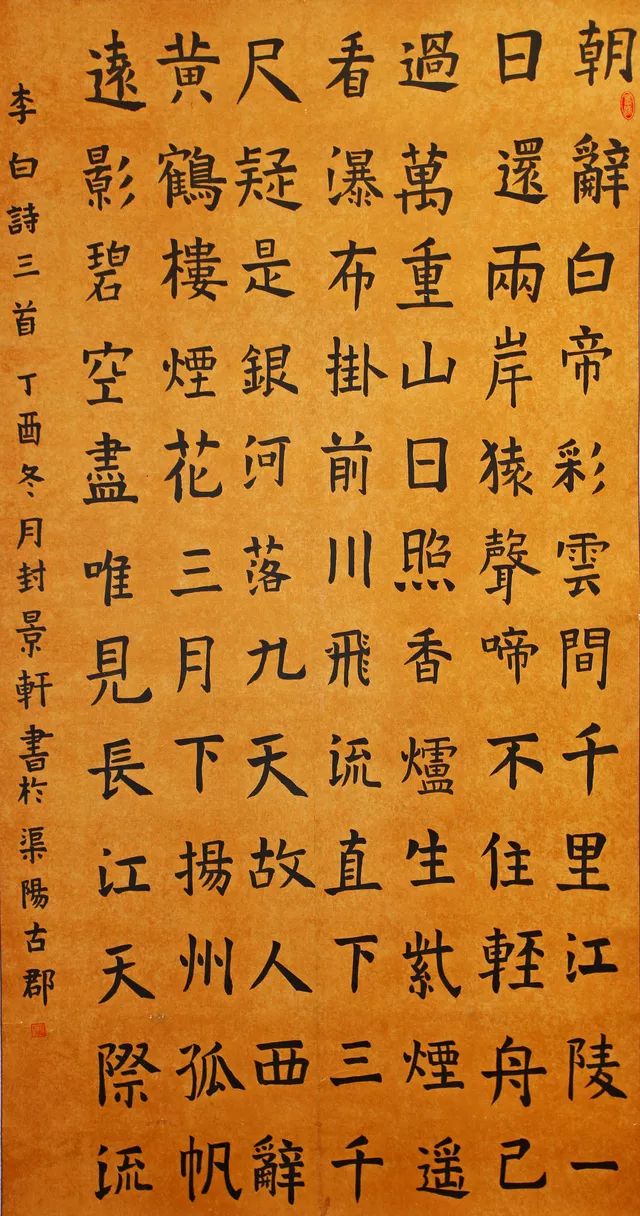 朝辭白帝彩雲間千里江陵一
日還兩岸猿聲啼不住輕舟已
過萬重山日照香爐生紫煙遥
看瀑布掛前川飛流直下三千
尺疑是銀河落九天故人西辭
黃鶴樓煙花三月下揚州孤帆
遠影碧空盡唯見長江天際流
李白詩三首丁酉冬月封景軒書於渠陽古郡